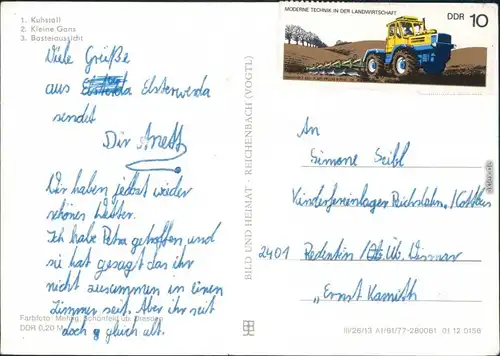 1. Kuhstall
2. Kleine Gans
3. Basteraussicht
Viele Grüße
aus Elsterwerda
sendet
Dir Anett
Wir haben jetzt wieder
schönes Wetter.
Ich habe Petra getroffen und
sie hat gesagt das ihr
nicht zusammen in einen
Zimmer seit. Aber ihr seit
doch gleich alt.
Farbfoto: Schönfeld üb. Dresden
DDR 0,20 M
BILD UND HEIMAT · REICHENBACH (VOGTL)
MODERNE TECHNIK IN DER LANDWIRTSCHAFT
DDR 10
An
Simone Seibl
Kinderferienlager / Cottbus
2401 Redentin / üb. Wismar
"Ernst Kamieth
III/26/13 A1/61/77-280081 01 12 0156